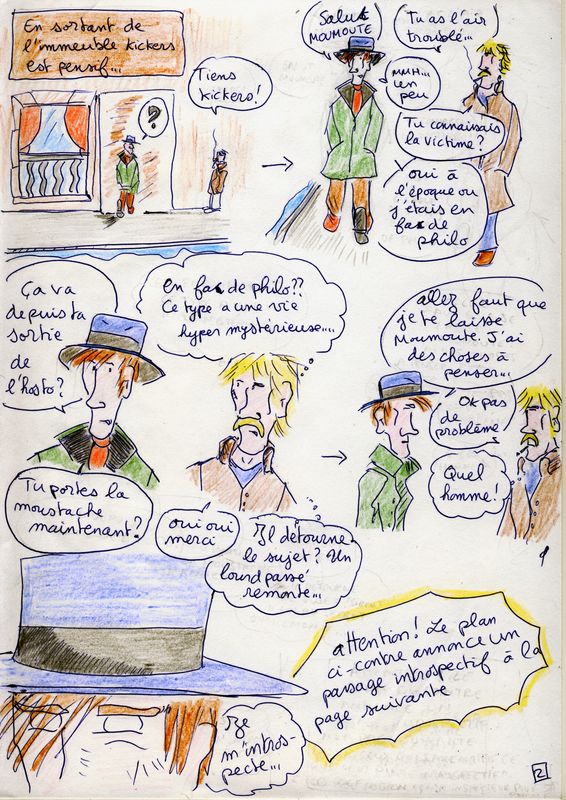 En sortant de
l'immeuble kickers
est pensif...
?
Tiens
kickers!
Salut
MOUMOUTE
Tu as l'air
troublé...
MMH...
un
peu
Tu connaissais
la victime?
oui à
l'époque ou
j'étais en
fac de
philo
Ça va
depuis ta
sortie
de
l'hosto?
En fac de philo??
Ce type a une vie
hyper mystérieuse....
allez faut que
je te laisse
Moumoute. J'ai
des choses à
penser...
Ok pas
de
problème
Quel
homme!
Tu portes la
moustache
maintenant?
oui oui
merci
Il détourne
le sujet? Un
lourd passé
remonte...
attention! Le plan
ci-contre annonce un
passage introspectif à la
page suivante
Je
m'intros-
pecte...
2